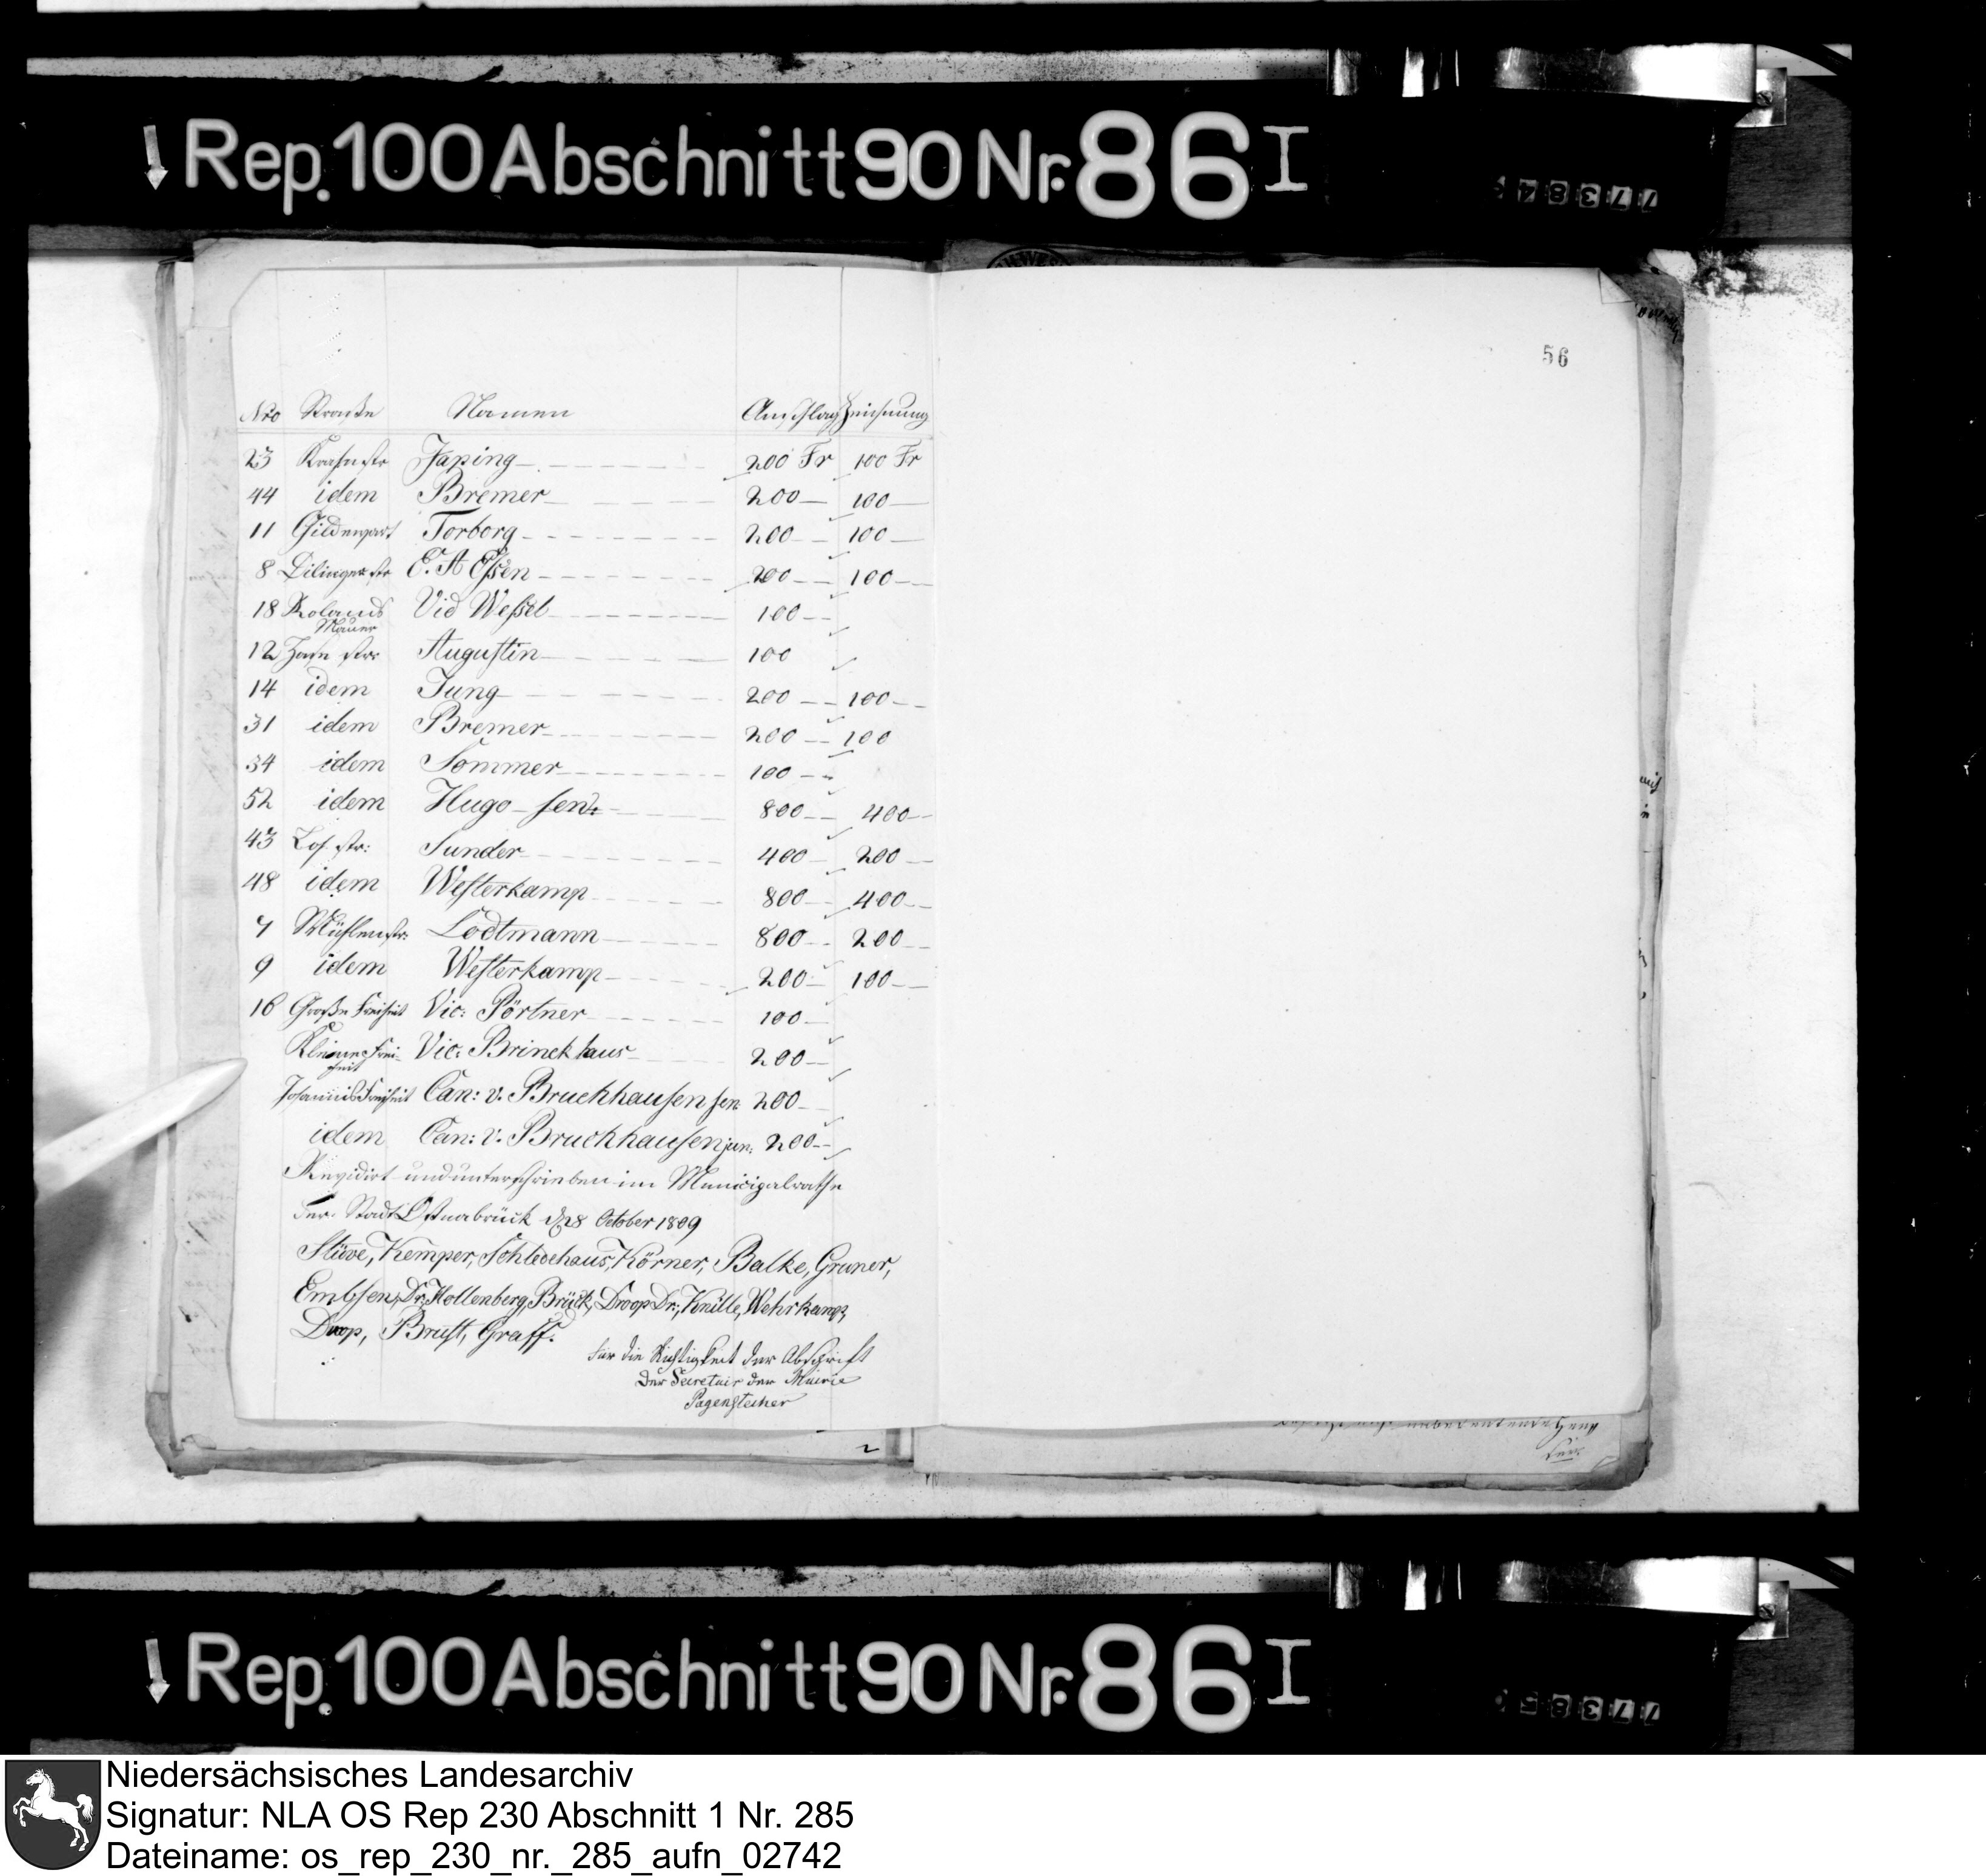 Rep. 100 Abschnitt 90 Nr. 86 I
77384
56
Nro Straße Namen Anschlag Zeichnung
23 Krahnstr Japing 200 Fr 100 Fr
44 idem Bremer 200 100
11 Gildewart Torborg 200 100
8 Bilingerstr E. A Essen 200 100
18 Rolands Mauer Vid Weßel 100
12 Hasestr Augustin 100
14 idem Jung 200 100
31 idem Bremer 200 100
34 idem Sommer 100
52 idem Hugo sen: 800 400
43 Loh str: Sunder 400 200
48 idem Westerkamp 800 400
7 Mühlenstr: Lodtmann 800 200
9 idem Westerkamp 200 100
16 Große Freiheit Vic: Pörtner 100
Kleine Freiheit Vic: Brinckhaus 200
Johannis Freiheit Can: v. Bruchhausen sen 200
idem Can: v. Bruchhausen jun: 200
Revidirt und unterschrieben im Municipalrathe
der Stadt Osnabrück d 28 October 1809
Stüve, Kemper, Schledehaus, Körner, Balke, Gruner,
Embsen, Dr. Hollenberg, Brück, Droop Dr., Knille, Wehrkamp,
Droop, Brust, Graff.
für die Richtigkeit der Abschrift
Der Secretair der Mairie
Pagenstecher
2
Rep. 100 Abschnitt 90 Nr. 86 I
77385
Niedersächsisches Landesarchiv
Signatur: NLA OS Rep 230 Abschnitt 1 Nr. 285
Dateiname: os_rep_230_nr._285_aufn_02742